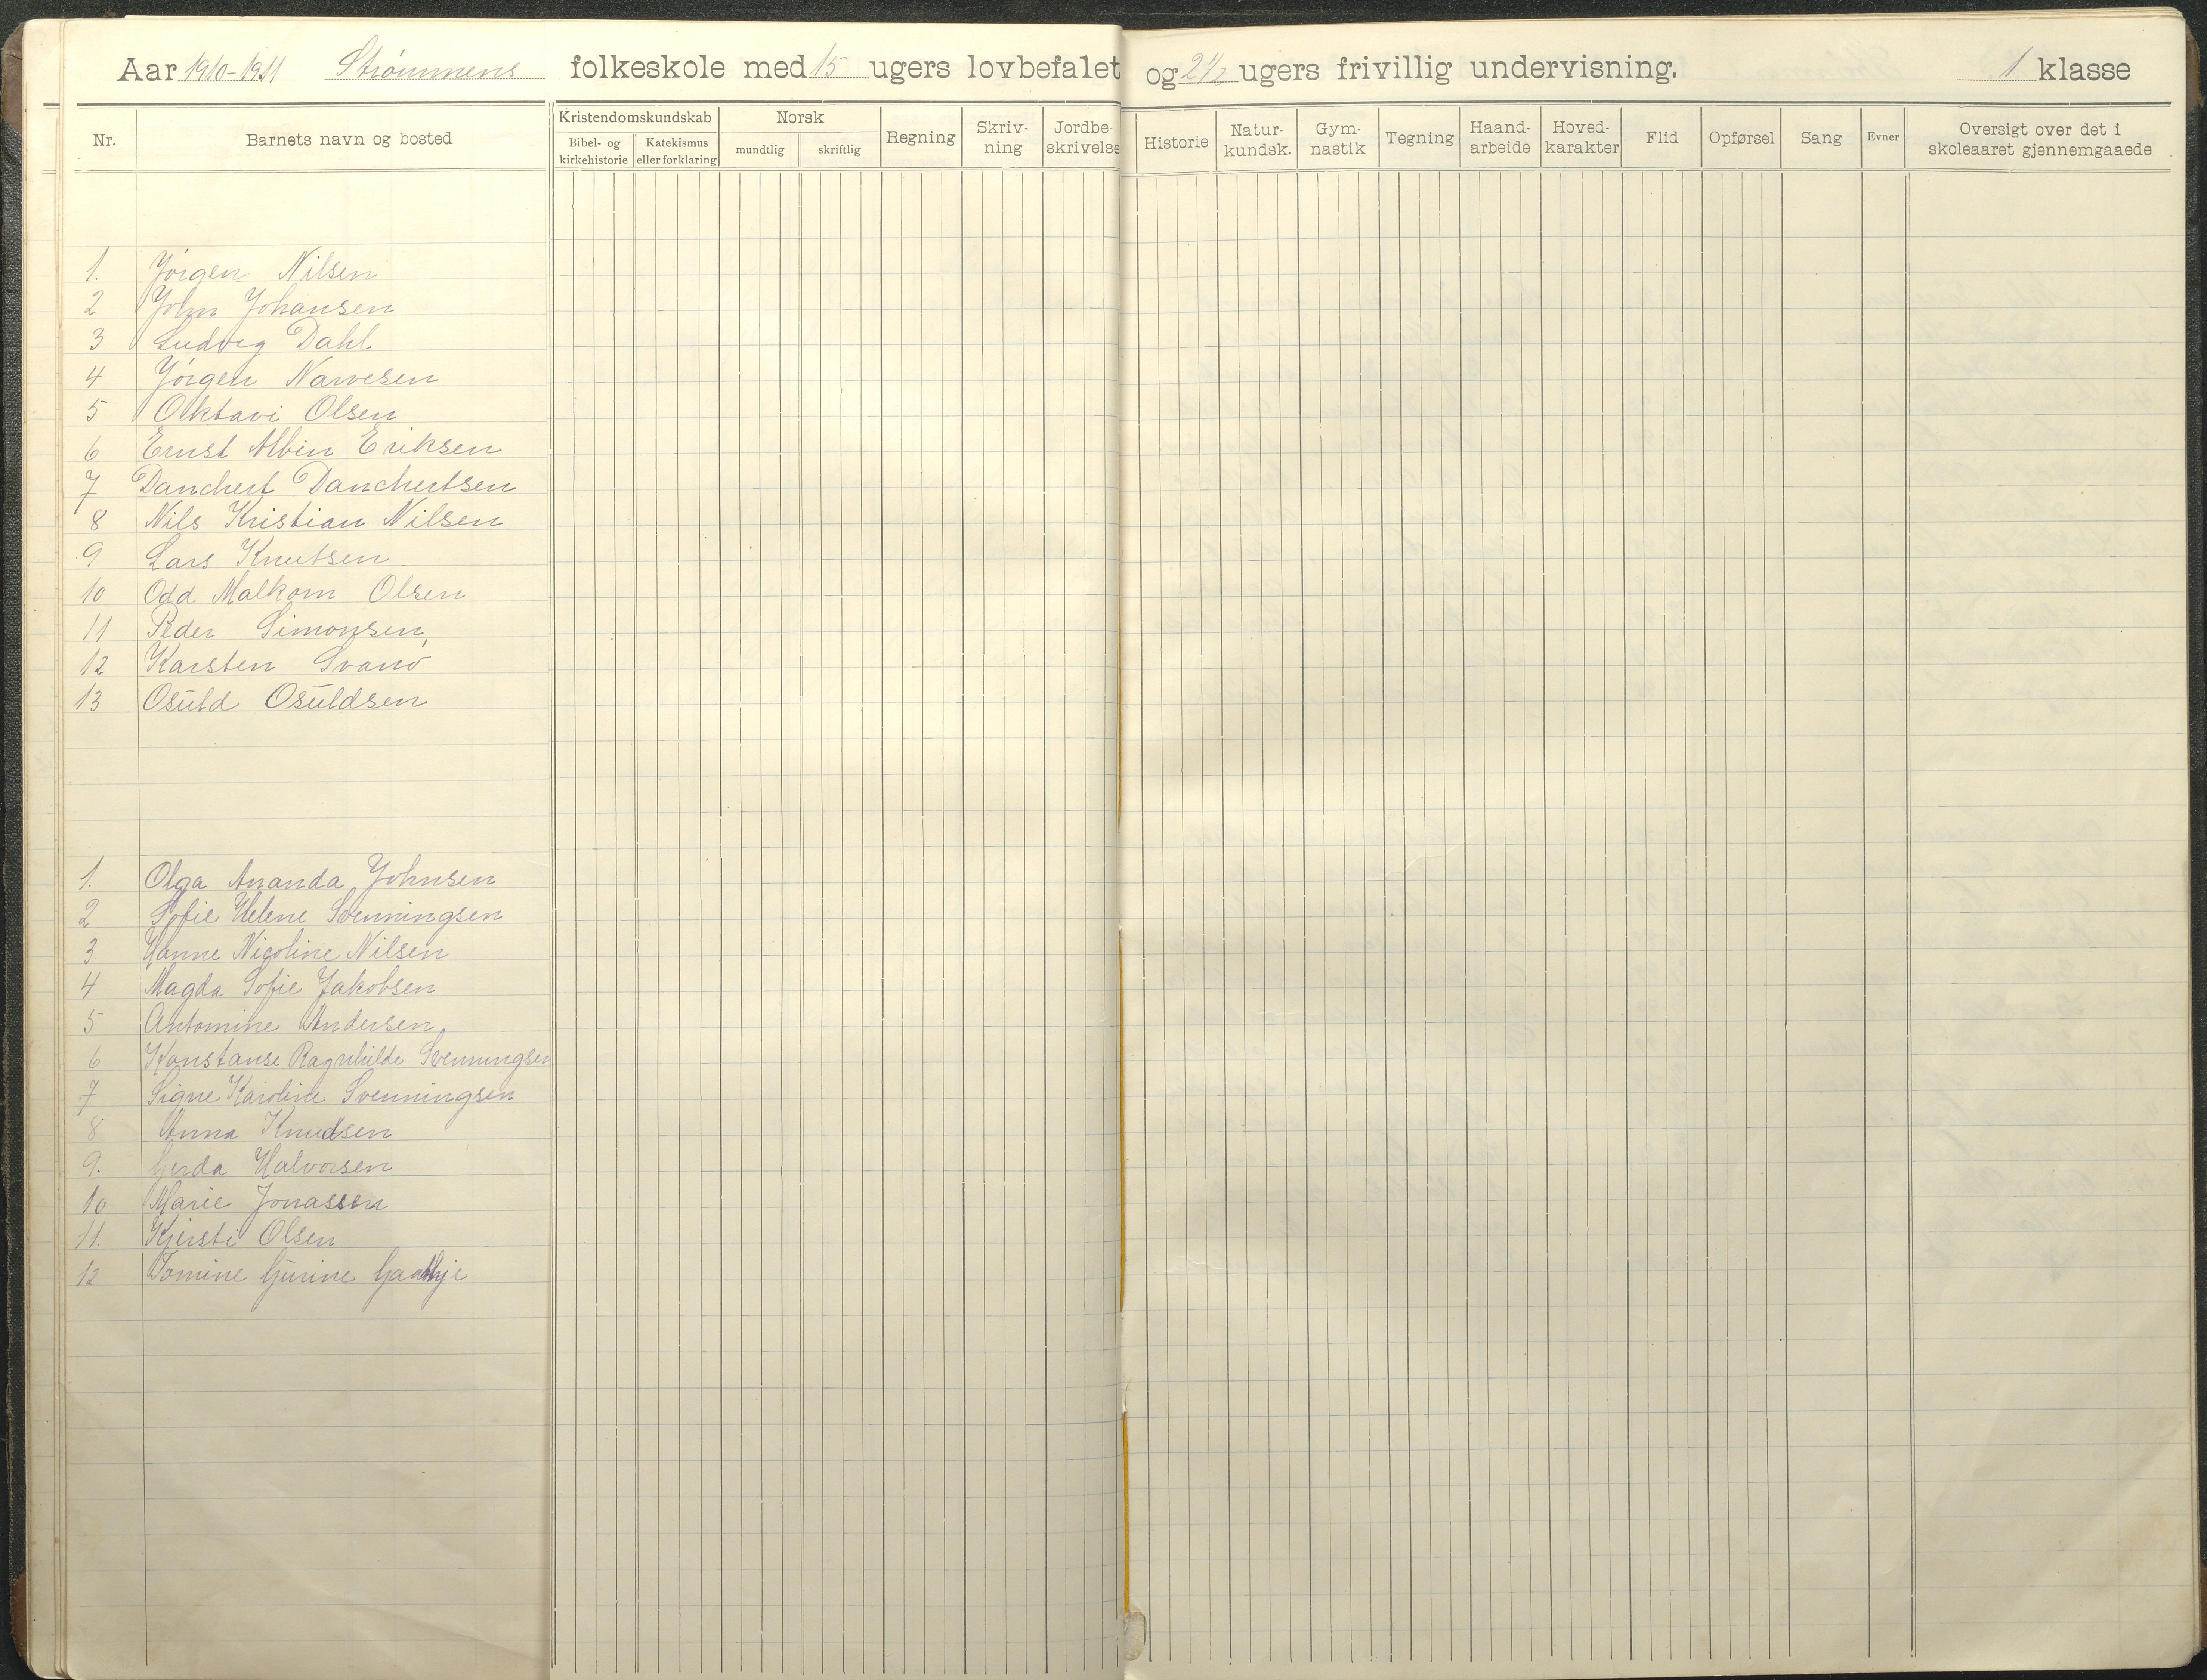 Aar 1910-1911 Strømmens folkeskole med 15 ugers lovbefalet og 2 1/2 ugers frivillig undervisning. 1 klasse
Nr. Barnets navn og bosted Kristendomskundskab Bibel- og kirkehistorie Katekismus eller forklaring Norsk mundtlig skriftlig Regning Skriv-ning Jordbe-skrivelse Historie Natur-kundsk. Gym-nastik Tegning Haand-arbeide Hoved-karakter Flid Opførsel Sang Evner Oversigt over det i skoleaaret gjennemgaaede
1. Jørgen Nilsen
2 John Johansen
3 Ludvig Dahl
4 Jørgen Narvesen
5 Oktavi Olsen
6 Ernst Albin Eriksen
7 Danchert Danchertsen
8 Nils Kristian Nilsen
9 Lars Knutsen
10 Odd Malkom Olsen
11 Peder Simonsen
12 Karsten Svanø
13 Osuld Osuldsen
1. Olga Ananda Johnsen
2 Sofie Helene Svenningsen
3. Hanne Nicoline Nilsen
4 Magda Sofie Jakobsen
5 Antomine Andersen
6 Konstanse Ragnhilde Svenningsen
7 Signe Karoline Svenningsen
8 Anna Knudsen
9. Gerda Halvorsen
10 Marie Jonassen
11. Kjersti Olsen
12 Tomine Gurine